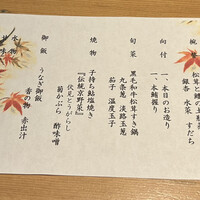 椀 松茸と鱧の土瓶蒸し
銀杏 水菜 すだち
向付 一、本日のお造り
一、本鮪握り
旬菜 黒毛和牛松茸すき鍋
九条葱 淡路玉葱
茄子 温度玉子
焼物 子持ち鮎塩焼き
『伝統京野菜』
伏見とうがらし
菊かぶら 酢味噌
御飯 うなぎ御飯
香の物 赤出汁
水物